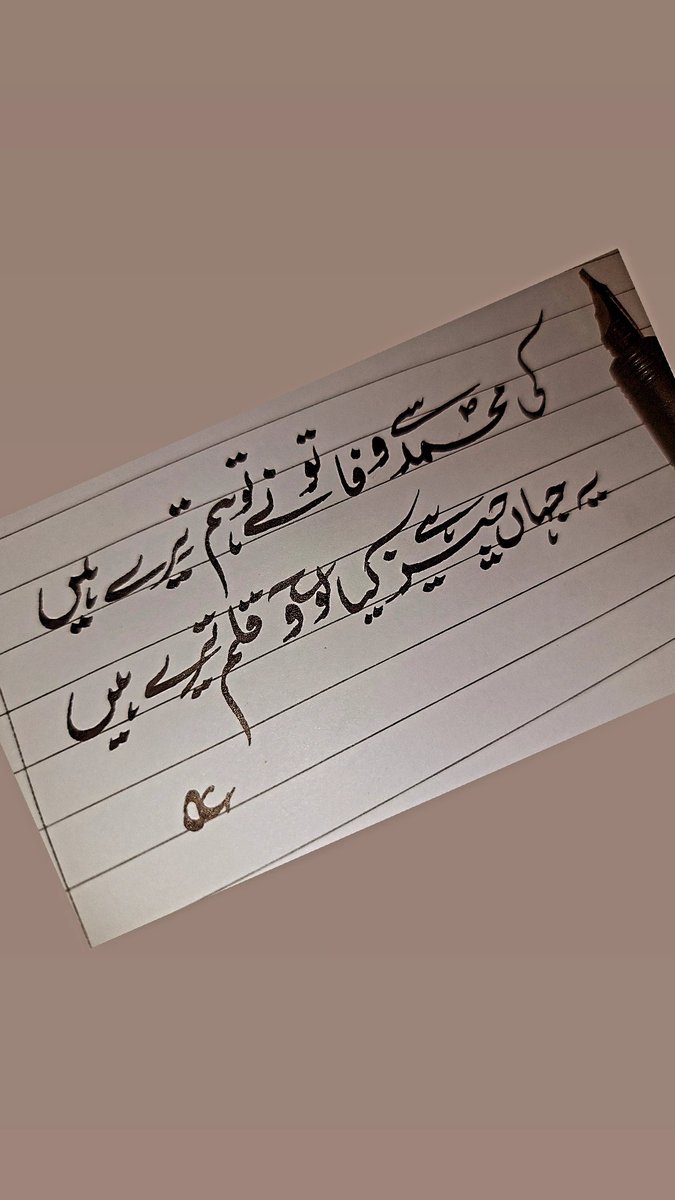 کی محمدؐ سے وفا تو نے تو ہم تیرے ہیں
یہ جہاں چیز ہے کیا لوح و قلم تیرے ہیں